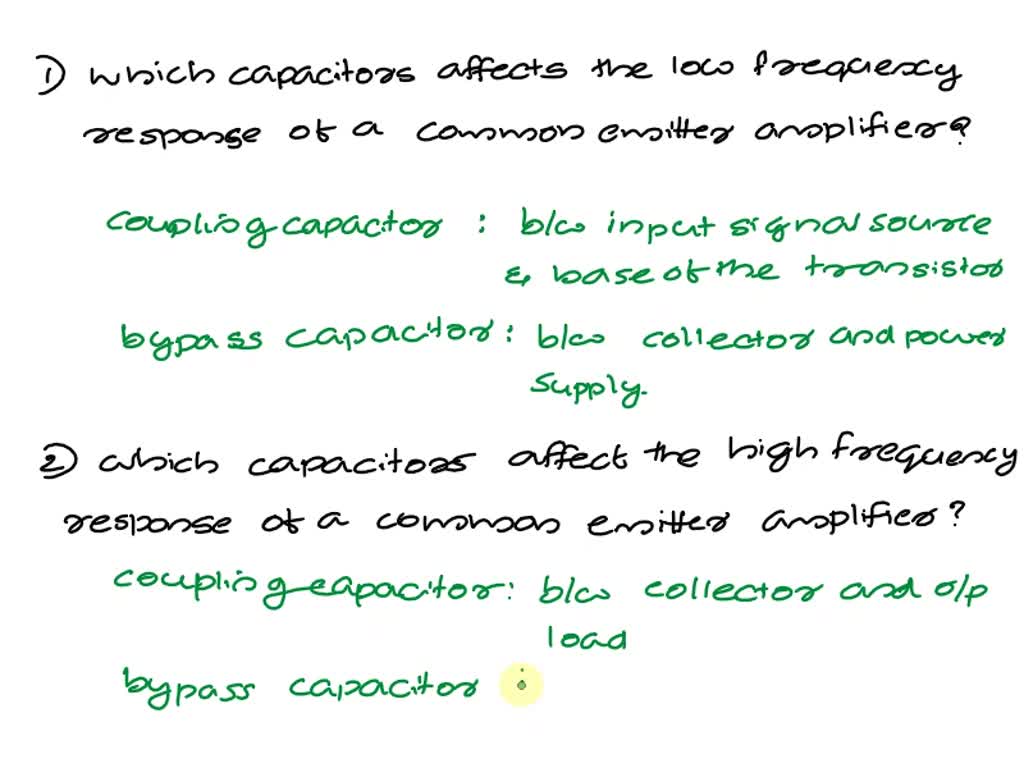 1) which capacitors affects the low frequency
response of a common emitter amplifier?
coupling capactor : b/w input signal source
& base of the transistor
bypass capacitor : b/w collector and power
supply.
2) which capacitors affect the high frequency
response of a common emitter amplifier?
coupling capacitor : b/w collector and o/p
load
bypass capacitor :